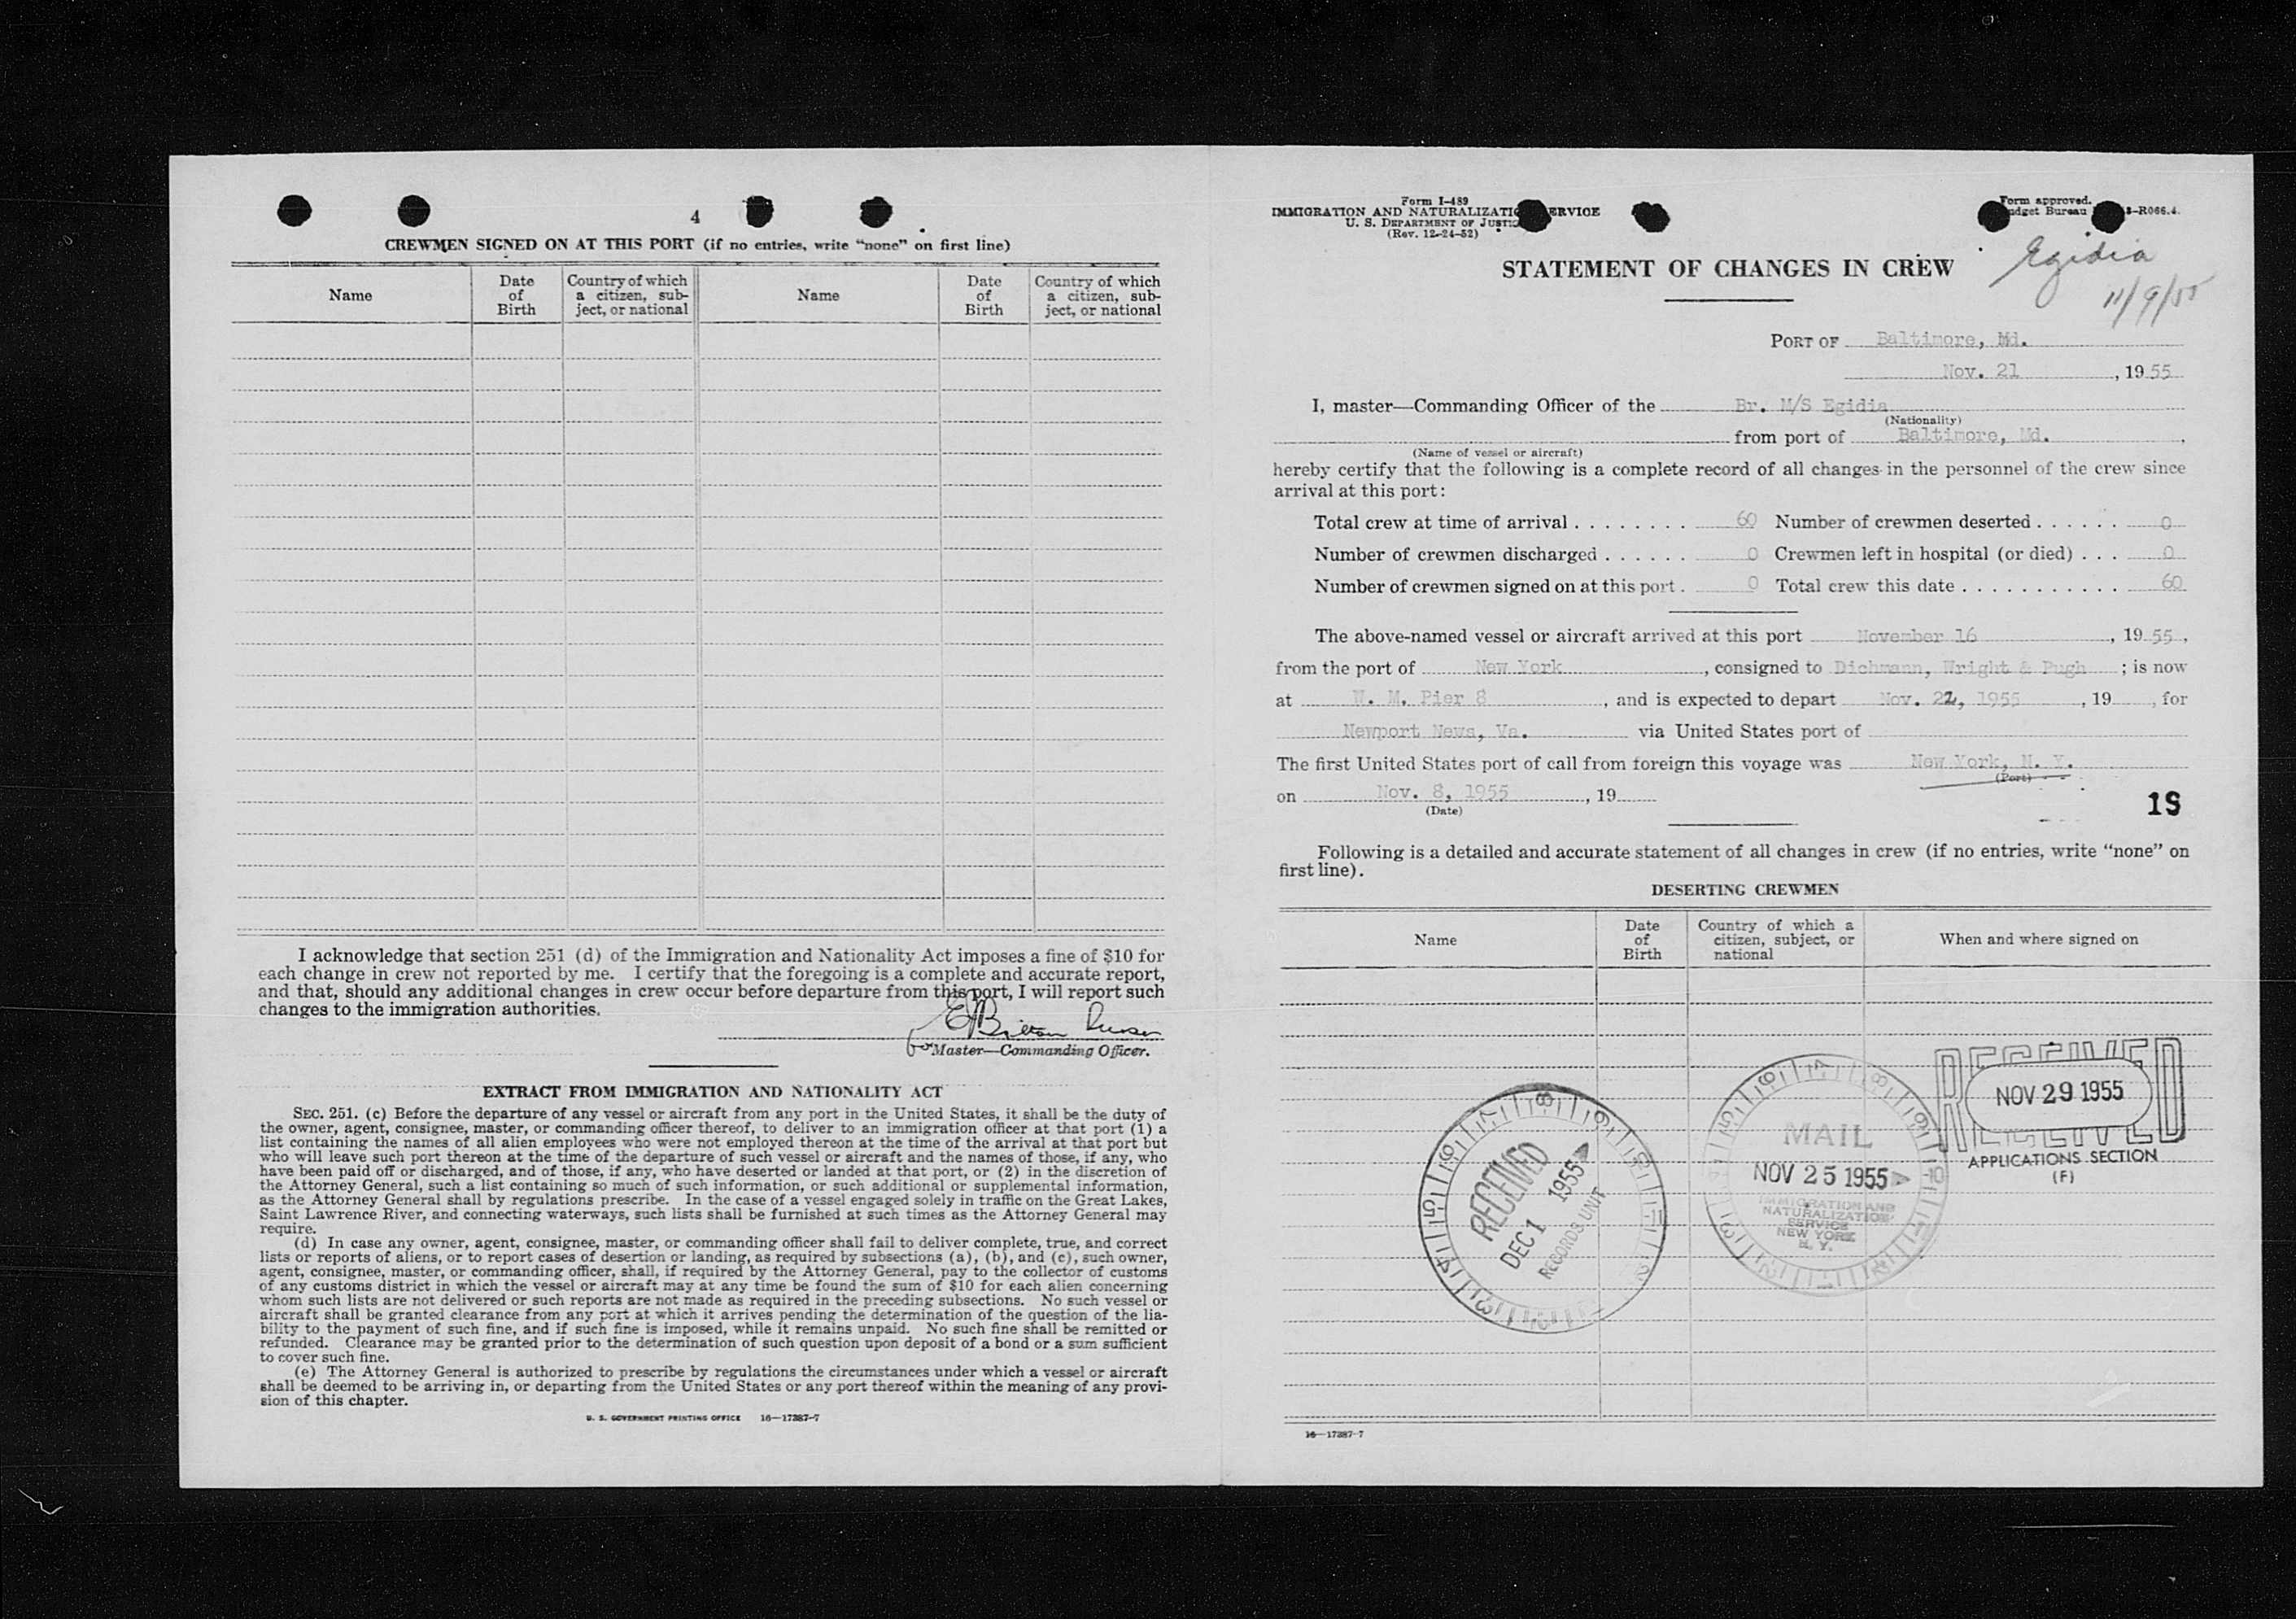 4
CREWMEN SIGNED ON AT THIS PORT (if no entries, write "none" on first line)
Name
Date of Birth
Country of which a citizen, sub-ject, or national
Name
Date of Birth
Country of which a citizen, sub-ject, or national
I acknowledge that section 251 (d) of the Immigration and Nationality Act imposes a fine of $10 for
each change in crew not reported by me. I certify that the foregoing is a complete and accurate report,
and that, should any additional changes in crew occur before departure from this port, I will report such
changes to the immigration authorities.
for Master—Commanding Officer.
EXTRACT FROM IMMIGRATION AND NATIONALITY ACT
SEC. 251. (c) Before the departure of any vessel or aircraft from any port in the United States, it shall be the duty of
the owner, agent, consignee, master, or commanding officer thereof, to deliver to an immigration officer at that port (1) a
list containing the names of all alien employees who were not employed thereon at the time of the arrival at that port but
who will leave such port thereon at the time of the departure of such vessel or aircraft and the names of those, if any, who
have been paid off or discharged, and of those, if any, who have deserted or landed at that port, or (2) in the discretion of
the Attorney General, such a list containing so much of such information, or such additional or supplemental information,
as the Attorney General shall by regulations prescribe. In the case of a vessel engaged solely in traffic on the Great Lakes,
Saint Lawrence River, and connecting waterways, such lists shall be furnished at such times as the Attorney General may
require.
(d) In case any owner, agent, consignee, master, or commanding officer shall fail to deliver complete, true, and correct
lists or reports of aliens, or to report cases of desertion or landing, as required by subsections (a), (b), and (c), such owner,
agent, consignee, master, or commanding officer, shall, if required by the Attorney General, pay to the collector of customs
of any customs district in which the vessel or aircraft may at any time be found the sum of $10 for each alien concerning
whom such lists are not delivered or such reports are not made as required in the preceding subsections. No such vessel or
aircraft shall be granted clearance from any port at which it arrives pending the determination of the question of the lia-
bility to the payment of such fine, and if such fine is imposed, while it remains unpaid. No such fine shall be remitted or
refunded. Clearance may be granted prior to the determination of such question upon deposit of a bond or a sum sufficient
to cover such fine.
(e) The Attorney General is authorized to prescribe by regulations the circumstances under which a vessel or aircraft
shall be deemed to be arriving in, or departing from the United States or any port thereof within the meaning of any provi-
sion of this chapter.
U. S. GOVERNMENT PRINTING OFFICE 16—17387-7
Form I-489
IMMIGRATION AND NATURALIZATI ERVICE
U. S. DEPARTMENT OF JUSTIC
(Rev. 12-24-52)
Form approved.
dget Bureau -R066.4.
STATEMENT OF CHANGES IN CREW
Egidia
11/9/55
PORT OF Baltimore, Md.
Nov. 21 , 19 55
I, master—Commanding Officer of the Br. M/S Egidia
(Nationality)
from port of Baltimore, Md. ,
(Name of vessel or aircraft)
hereby certify that the following is a complete record of all changes in the personnel of the crew since
arrival at this port:
Total crew at time of arrival . . . . . . . . 60 Number of crewmen deserted . . . . . . 0
Number of crewmen discharged . . . . . . 0 Crewmen left in hospital (or died) . . . 0
Number of crewmen signed on at this port . 0 Total crew this date . . . . . . . . . . . 60
The above-named vessel or aircraft arrived at this port November 16 , 19 55 ,
from the port of New York , consigned to Dichmann, Wright & Pugh ; is now
at W. M. Pier 8 , and is expected to depart Nov. 22, 1955 , 19 , for
Newport News, Va. via United States port of
The first United States port of call from foreign this voyage was New York, N. Y.
(Port)
on Nov. 8, 1955 , 19
(Date)
19
Following is a detailed and accurate statement of all changes in crew (if no entries, write "none" on
first line).
DESERTING CREWMEN
Name
Date of Birth
Country of which a citizen, subject, or national
When and where signed on
RECEIVED
NOV 29 1955
RECEIVED
APPLICATIONS SECTION
(F)
MAIL
NOV 25 1955
IMMIGRATION AND
NATURALIZATION
SERVICE
NEW YORK
N. Y.
RECEIVED
DEC 1 1955
RECORDS UNIT
16—17387-7